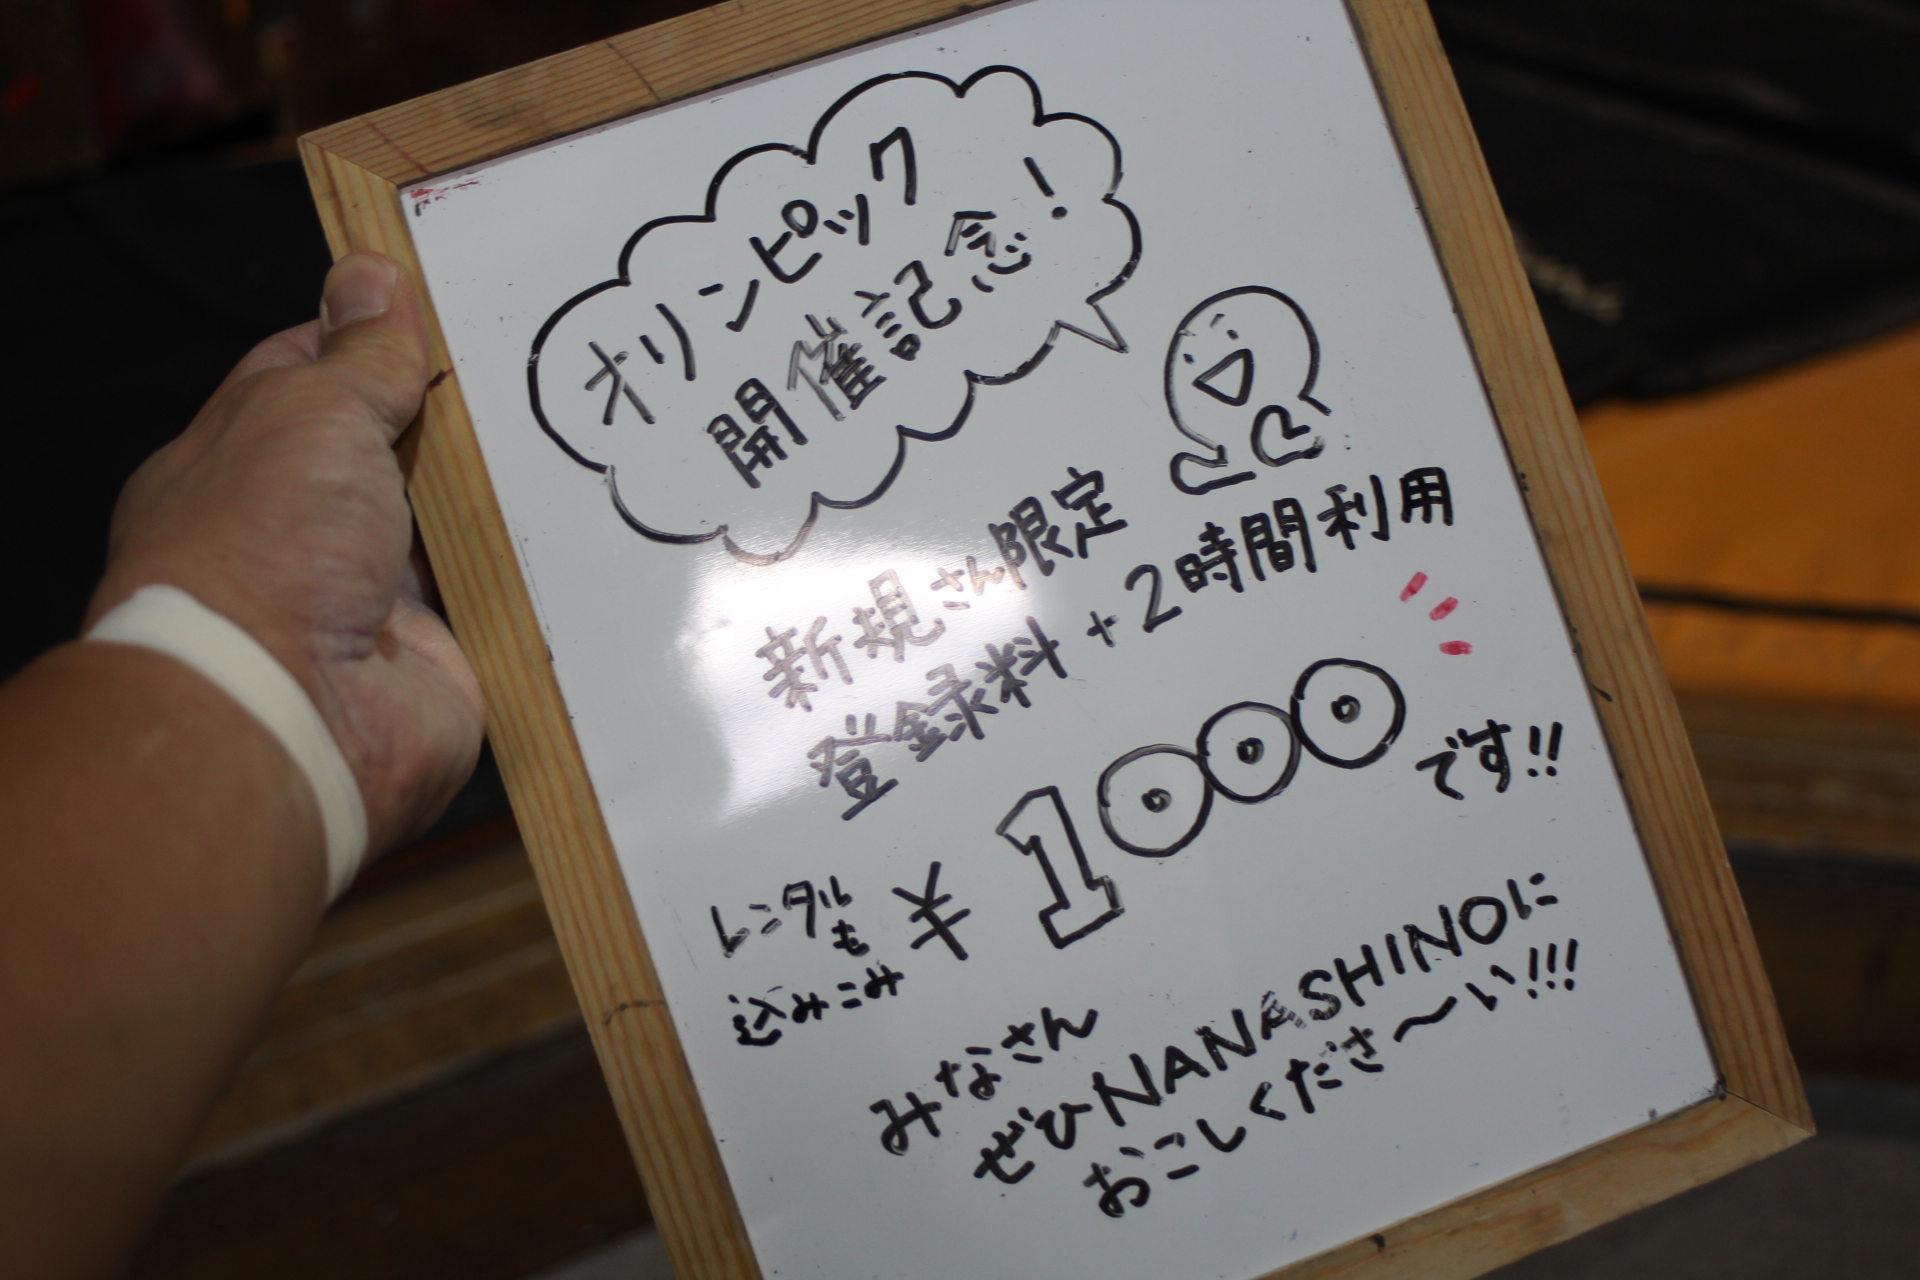 オリンピック
開催記念!
新規さん限定
登録料+2時間利用
レンタルも
込みこみ
¥1000です!!
みなさん
ぜひNANASHINOに
おこしくださ〜い!!!